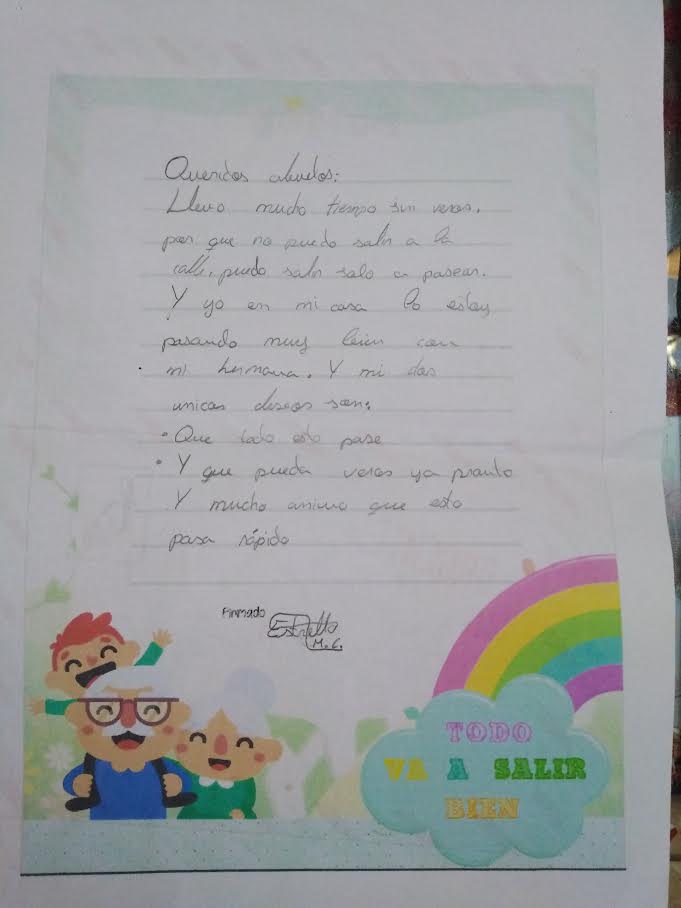 Queridos abuelos:
Llevo mucho tiempo sin veros,
por que no puedo salir a la
calle, puedo salir solo a pasear.
Y yo en mi casa lo estoy
pasando muy bien con
mi hermana. Y mi dos
unicos deseos son:
• Que todo esto pase
• Y que pueda veros ya pronto
Y mucho animo que esto
pasa rápido
Firmado
Estrella
M.C.
TODO
VA A SALIR
BIEN